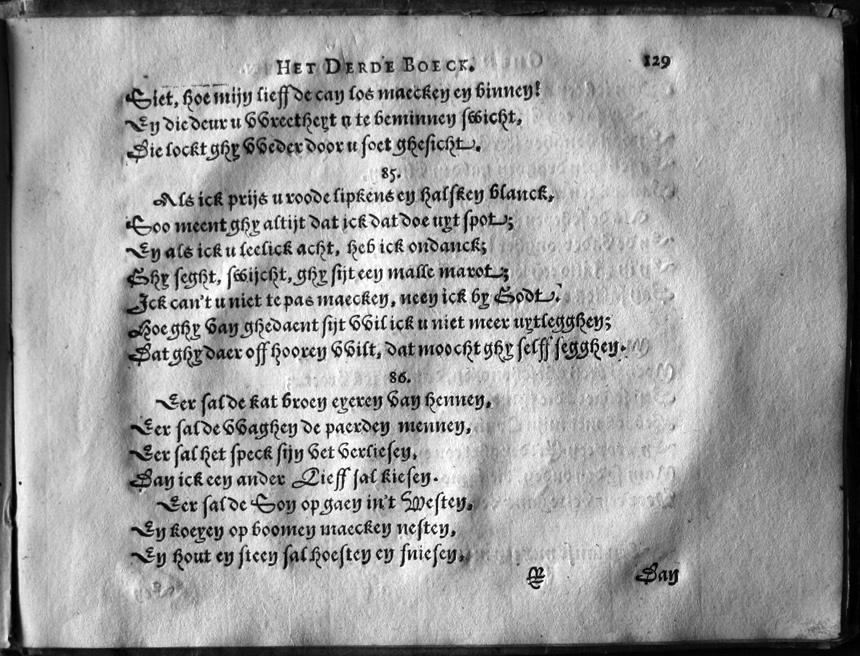 HET DERDE BOECK. 129
Siet, hoe mijn lieff de can los maecken en binnen!
En die deur u VVreetheyt u te beminnen swicht,
Die lockt ghy VVeder door u soet ghesicht.
85.
Als ick prijs u roode lipkens en halsken blanck,
Soo meent ghy altijt dat ick dat doe uyt spot;
En als ick u leelick acht, heb ick ondanck;
Ghy seght, swijcht, ghy sijt een malle marot;
Ick can't u niet te pas maecken, neen ick by Godt.
Hoe ghy van ghedaent sijt VVil ick u niet meer uytlegghen;
Dat ghy daer off hooren VVilt, dat moocht ghy selff segghen.
86.
Eer sal de kat broen eyeren van hennen,
Eer sal de VVaghen de paerden mennen,
Eer sal het speck sijn vet verliesen,
Dan ick een ander Lieff sal kiesen.
Eer sal de Son op gaen in't Westen,
En koeyen op boomen maecken nesten,
En hout en steen sal hoesten en fniesen,
Dan